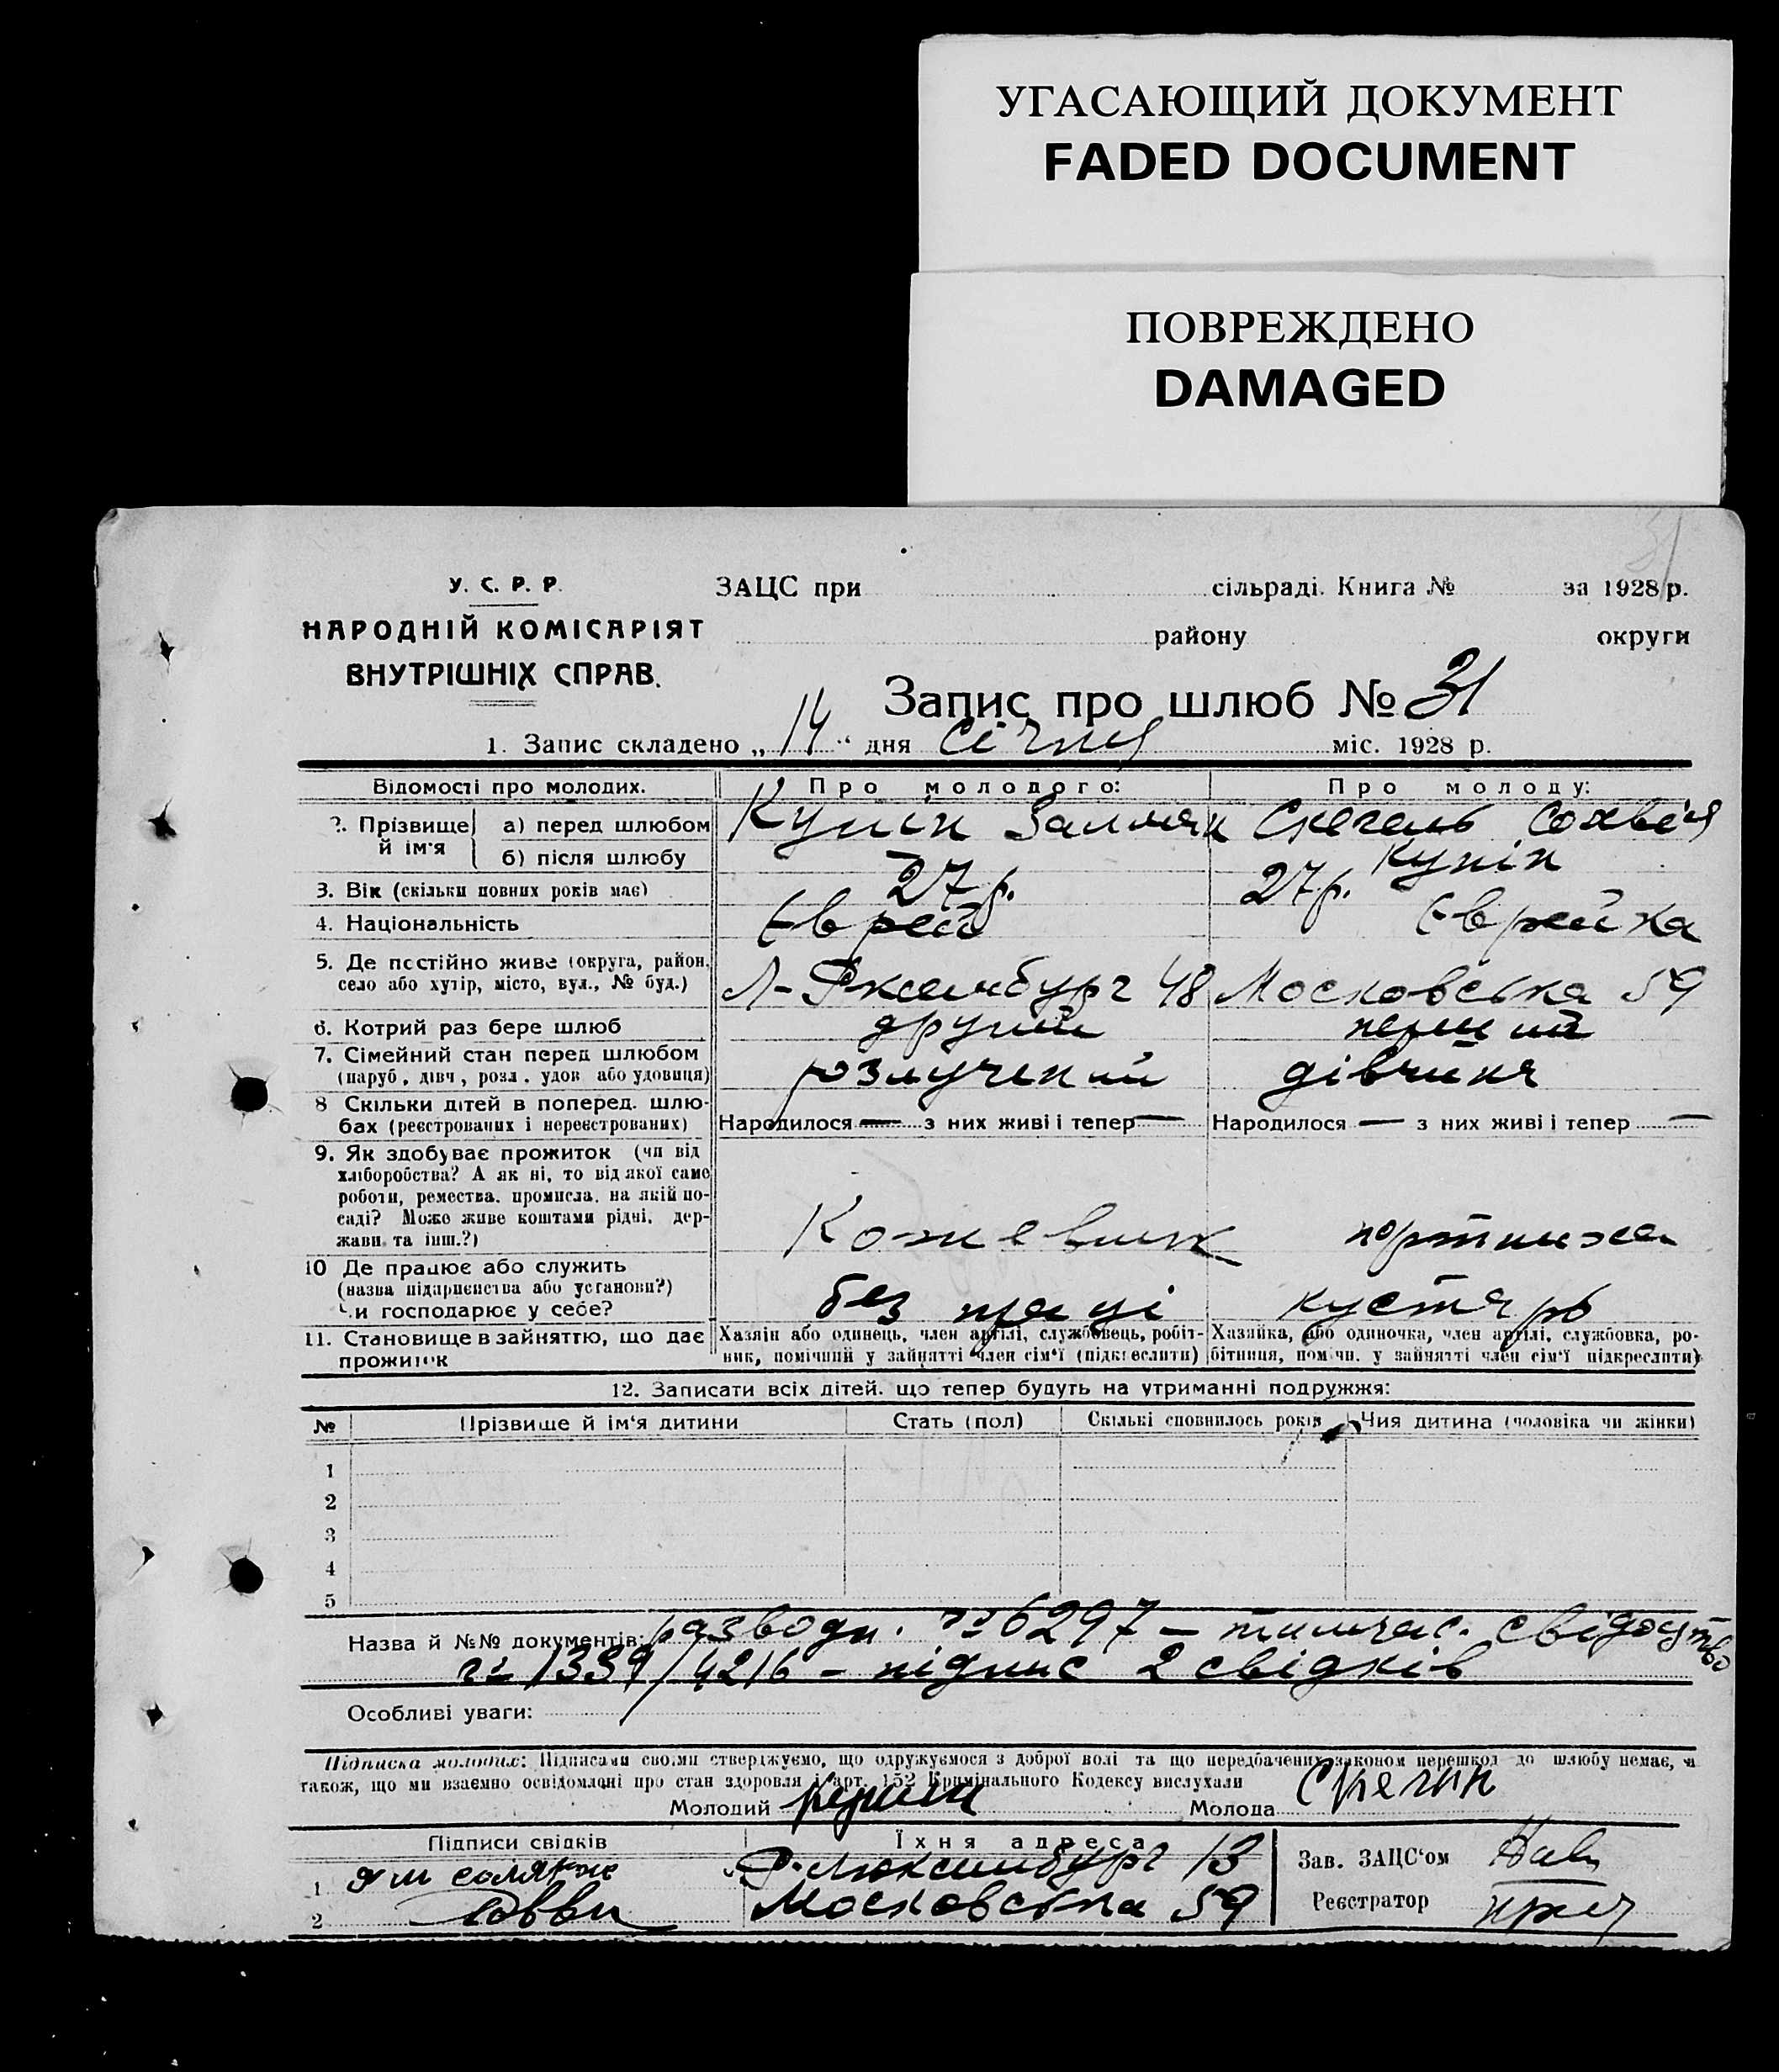 УГАСАЮЩИЙ ДОКУМЕНТ
FADED DOCUMENT
ПОВРЕЖДЕНО
DAMAGED
31
У. С. Р. Р.
НАРОДНІЙ КОМІСАРІЯТ
ВНУТРІШНІХ СПРАВ.
ЗАЦС при сільраді. Книга № за 1928 р.
району округи
Запис про шлюб № 31
1. Запис складено „ 14 “ дня Січня міс. 1928 р.
Відомості про молодих. Про молодого: Про молоду:
2. Прізвище й ім'я а) перед шлюбом Купін Залман Сохвія
б) після шлюбу Купін
3. Вік (скільки повних років має) 27 р. 27 р.
4. Національність Єврей Єврейка
5. Де постійно живе (округа, район, село або хутір, місто, вул., № буд.) 48 Московська 59
6. Котрий раз бере шлюб другий перший
7. Сімейний стан перед шлюбом (паруб., дівч., розл., удов. або удовиця) розлучений дівчина
8 Скільки дітей в поперед. шлюбах (реєстрованих і нереєстрованих) Народилося — з них живі і тепер — Народилося — з них живі і тепер —
9. Як здобуває прожиток (чи від
хліборобства? А як ні, то від якої саме
роботи, ремества, промисла, на якій по-
саді? Може живе коштами рідні, дер-
жави та інш.?) Кожевник портниха
10 Де працює або служить
(назва підприємства або установи?)
Чи господарює у себе? без праці кустарь
11. Становище в зайняттю, що дає прожиток
Хазяїн або одинець, член артілі, службовець, робіт-
ник, помічний у зайнятті член сім'ї (підкреслити)
Хазяйка, або одиночка, член артілі, службовка, ро-
бітниця, помічн. у зайнятті член сім'ї підкреслити)
12. Записати всіх дітей, що тепер будуть на утриманні подружжя:
№ Прізвище й ім'я дитини Стать (пол) Скількі сповнилось років Чия дитина (чоловіка чи жінки)
1
2
3
4
5
Назва й №№ документів: разводн. № 6297 – тимчас. свідоцтво
№ 1339/4216 – підпис 2 свідків
Особливі уваги:
Підписка молодих: Підписами своїми стверджуємо, що одружуємося з доброї волі та що передбачених законом перешкод до шлюбу немає, а
також, що ми взаємно освідомлені про стан здоровля і арт. 152 Кримінального Кодексу вислухали
Молодий Молода
Підписи свідків Їхня адреса
1 Р. Люксембург 13 Зав. ЗАЦС'ом
2 Московська 59 Реєстратор